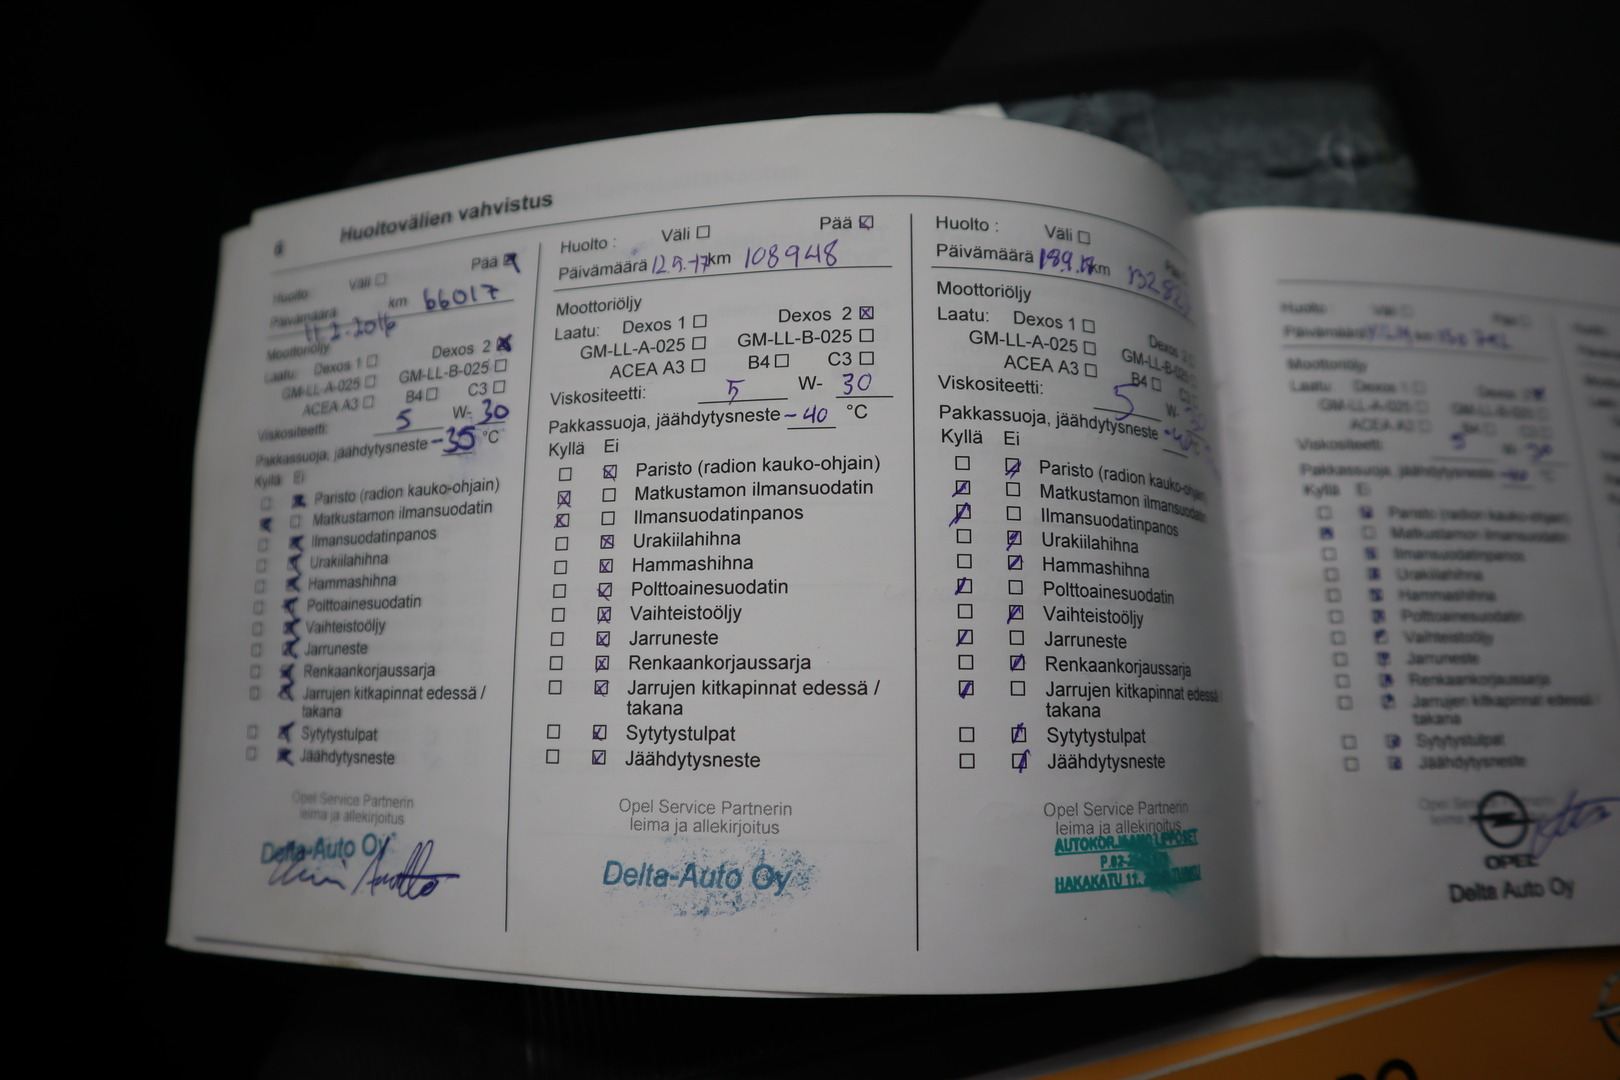 6 Huoltovälien vahvistus
Huolto: Väli Pää
Päivämäärä km 66017
11.2.2016
Moottoriöljy
Laatu: Dexos 1 Dexos 2
GM-LL-A-025 GM-LL-B-025
ACEA A3 B4 C3
Viskositeetti: 5 W- 30
Pakkassuoja, jäähdytysneste -35 °C
Kyllä Ei
Paristo (radion kauko-ohjain)
Matkustamon ilmansuodatin
Ilmansuodatinpanos
Urakiilahihna
Hammashihna
Polttoainesuodatin
Vaihteistoöljy
Jarruneste
Renkaankorjaussarja
Jarrujen kitkapinnat edessä /
takana
Sytytystulpat
Jäähdytysneste
Opel Service Partnerin
leima ja allekirjoitus
Delta-Auto Oy
Huolto : Väli Pää
Päivämäärä 12.9.17 km 108948
Moottoriöljy
Laatu: Dexos 1 Dexos 2
GM-LL-A-025 GM-LL-B-025
ACEA A3 B4 C3
Viskositeetti: 5 W- 30
Pakkassuoja, jäähdytysneste -40 °C
Kyllä Ei
Paristo (radion kauko-ohjain)
Matkustamon ilmansuodatin
Ilmansuodatinpanos
Urakiilahihna
Hammashihna
Polttoainesuodatin
Vaihteistoöljy
Jarruneste
Renkaankorjaussarja
Jarrujen kitkapinnat edessä /
takana
Sytytystulpat
Jäähdytysneste
Opel Service Partnerin
leima ja allekirjoitus
Delta-Auto Oy
Huolto : Väli
Päivämäärä km
Moottoriöljy
Laatu: Dexos 1 Dexos 2
GM-LL-A-025 GM-LL-B-025
ACEA A3 B4 C3
Viskositeetti: 5 W-
Pakkassuoja, jäähdytysneste
Kyllä Ei
Paristo (radion kauko-ohjain)
Matkustamon ilmansuodatin
Ilmansuodatinpanos
Urakiilahihna
Hammashihna
Polttoainesuodatin
Vaihteistoöljy
Jarruneste
Renkaankorjaussarja
Jarrujen kitkapinnat edessä
takana
Sytytystulpat
Jäähdytysneste
Opel Service Partnerin
leima ja allekirjoitus
HAKAKATU
Huolto : Väli
Päivämäärä km
Moottoriöljy
Laatu: Dexos 1 Dexos 2
GM-LL-A-025 GM-LL-B-025
ACEA A3
Viskositeetti: 5 W- 30
Pakkassuoja, jäähdytysneste -40 °C
Kyllä Ei
Paristo (radion kauko-ohjain)
Matkustamon ilmansuodatin
Ilmansuodatinpanos
Urakiilahihna
Hammashihna
Polttoainesuodatin
Vaihteistoöljy
Jarruneste
Renkaankorjaussarja
Jarrujen kitkapinnat edessä /
takana
Sytytystulpat
Jäähdytysneste
Opel Service Partnerin
OPEL
Delta Auto Oy